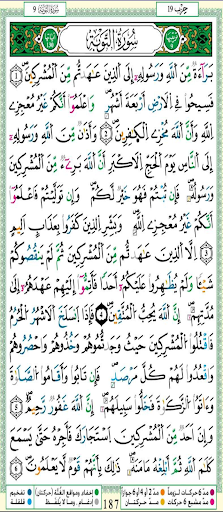 حزب 19
سورة التوبة 9
سُورَةُ التَّوْبَةِ
بَرَآءَةٌ مِّنَ ٱللَّهِ وَرَسُولِهِۦٓ إِلَى ٱلَّذِينَ عَٰهَدتُّم مِّنَ ٱلْمُشْرِكِينَ ١
فَسِيحُوا۟ فِى ٱلْأَرْضِ أَرْبَعَةَ أَشْهُرٍ وَٱعْلَمُوٓا۟ أَنَّكُمْ غَيْرُ مُعْجِزِى
ٱللَّهِ وَأَنَّ ٱللَّهَ مُخْزِى ٱلْكَٰفِرِينَ ٢ وَأَذَٰنٌ مِّنَ ٱللَّهِ وَرَسُولِهِۦٓ
إِلَى ٱلنَّاسِ يَوْمَ ٱلْحَجِّ ٱلْأَكْبَرِ أَنَّ ٱللَّهَ بَرِىٓءٌ مِّنَ ٱلْمُشْرِكِينَ
وَرَسُولُهُۥ فَإِن تُبْتُمْ فَهُوَ خَيْرٌ لَّكُمْ وَإِن تَوَلَّيْتُمْ فَٱعْلَمُوٓا۟
أَنَّكُمْ غَيْرُ مُعْجِزِى ٱللَّهِ وَبَشِّرِ ٱلَّذِينَ كَفَرُوا۟ بِعَذَابٍ أَلِيمٍ
٣ إِلَّا ٱلَّذِينَ عَٰهَدتُّم مِّنَ ٱلْمُشْرِكِينَ ثُمَّ لَمْ يَنقُصُوكُمْ
شَيْـًٔا وَلَمْ يُظَٰهِرُوا۟ عَلَيْكُمْ أَحَدًا فَأَتِمُّوٓا۟ إِلَيْهِمْ عَهْدَهُمْ إِلَىٰ
مُدَّتِهِمْ إِنَّ ٱللَّهَ يُحِبُّ ٱلْمُتَّقِينَ ٤ فَإِذَا ٱنسَلَخَ ٱلْأَشْهُرُ ٱلْحُرُمُ
فَٱقْتُلُوا۟ ٱلْمُشْرِكِينَ حَيْثُ وَجَدتُّمُوهُمْ وَخُذُوهُمْ وَٱحْصُرُوهُمْ
وَٱقْعُدُوا۟ لَهُمْ كُلَّ مَرْصَدٍ فَإِن تَابُوا۟ وَأَقَامُوا۟ ٱلصَّلَوٰةَ
وَءَاتَوُا۟ ٱلزَّكَوٰةَ فَخَلُّوا۟ سَبِيلَهُمْ إِنَّ ٱللَّهَ غَفُورٌ رَّحِيمٌ ٥
وَإِنْ أَحَدٌ مِّنَ ٱلْمُشْرِكِينَ ٱسْتَجَارَكَ فَأَجِرْهُ حَتَّىٰ يَسْمَعَ
كَلَٰمَ ٱللَّهِ ثُمَّ أَبْلِغْهُ مَأْمَنَهُۥ ذَٰلِكَ بِأَنَّهُمْ قَوْمٌ لَّا يَعْلَمُونَ ٦
187
مدّ ٦ حركات لزوماً
مدّ ٢ أو ٤ أو ٦ جوازاً
مدّ مشبع ٦ حركات
مدّ حركتان
إخفاء ومواقع الغنّة (حركتان)
إدغام، وما لا يلفظ
تفخيم
قلقلة